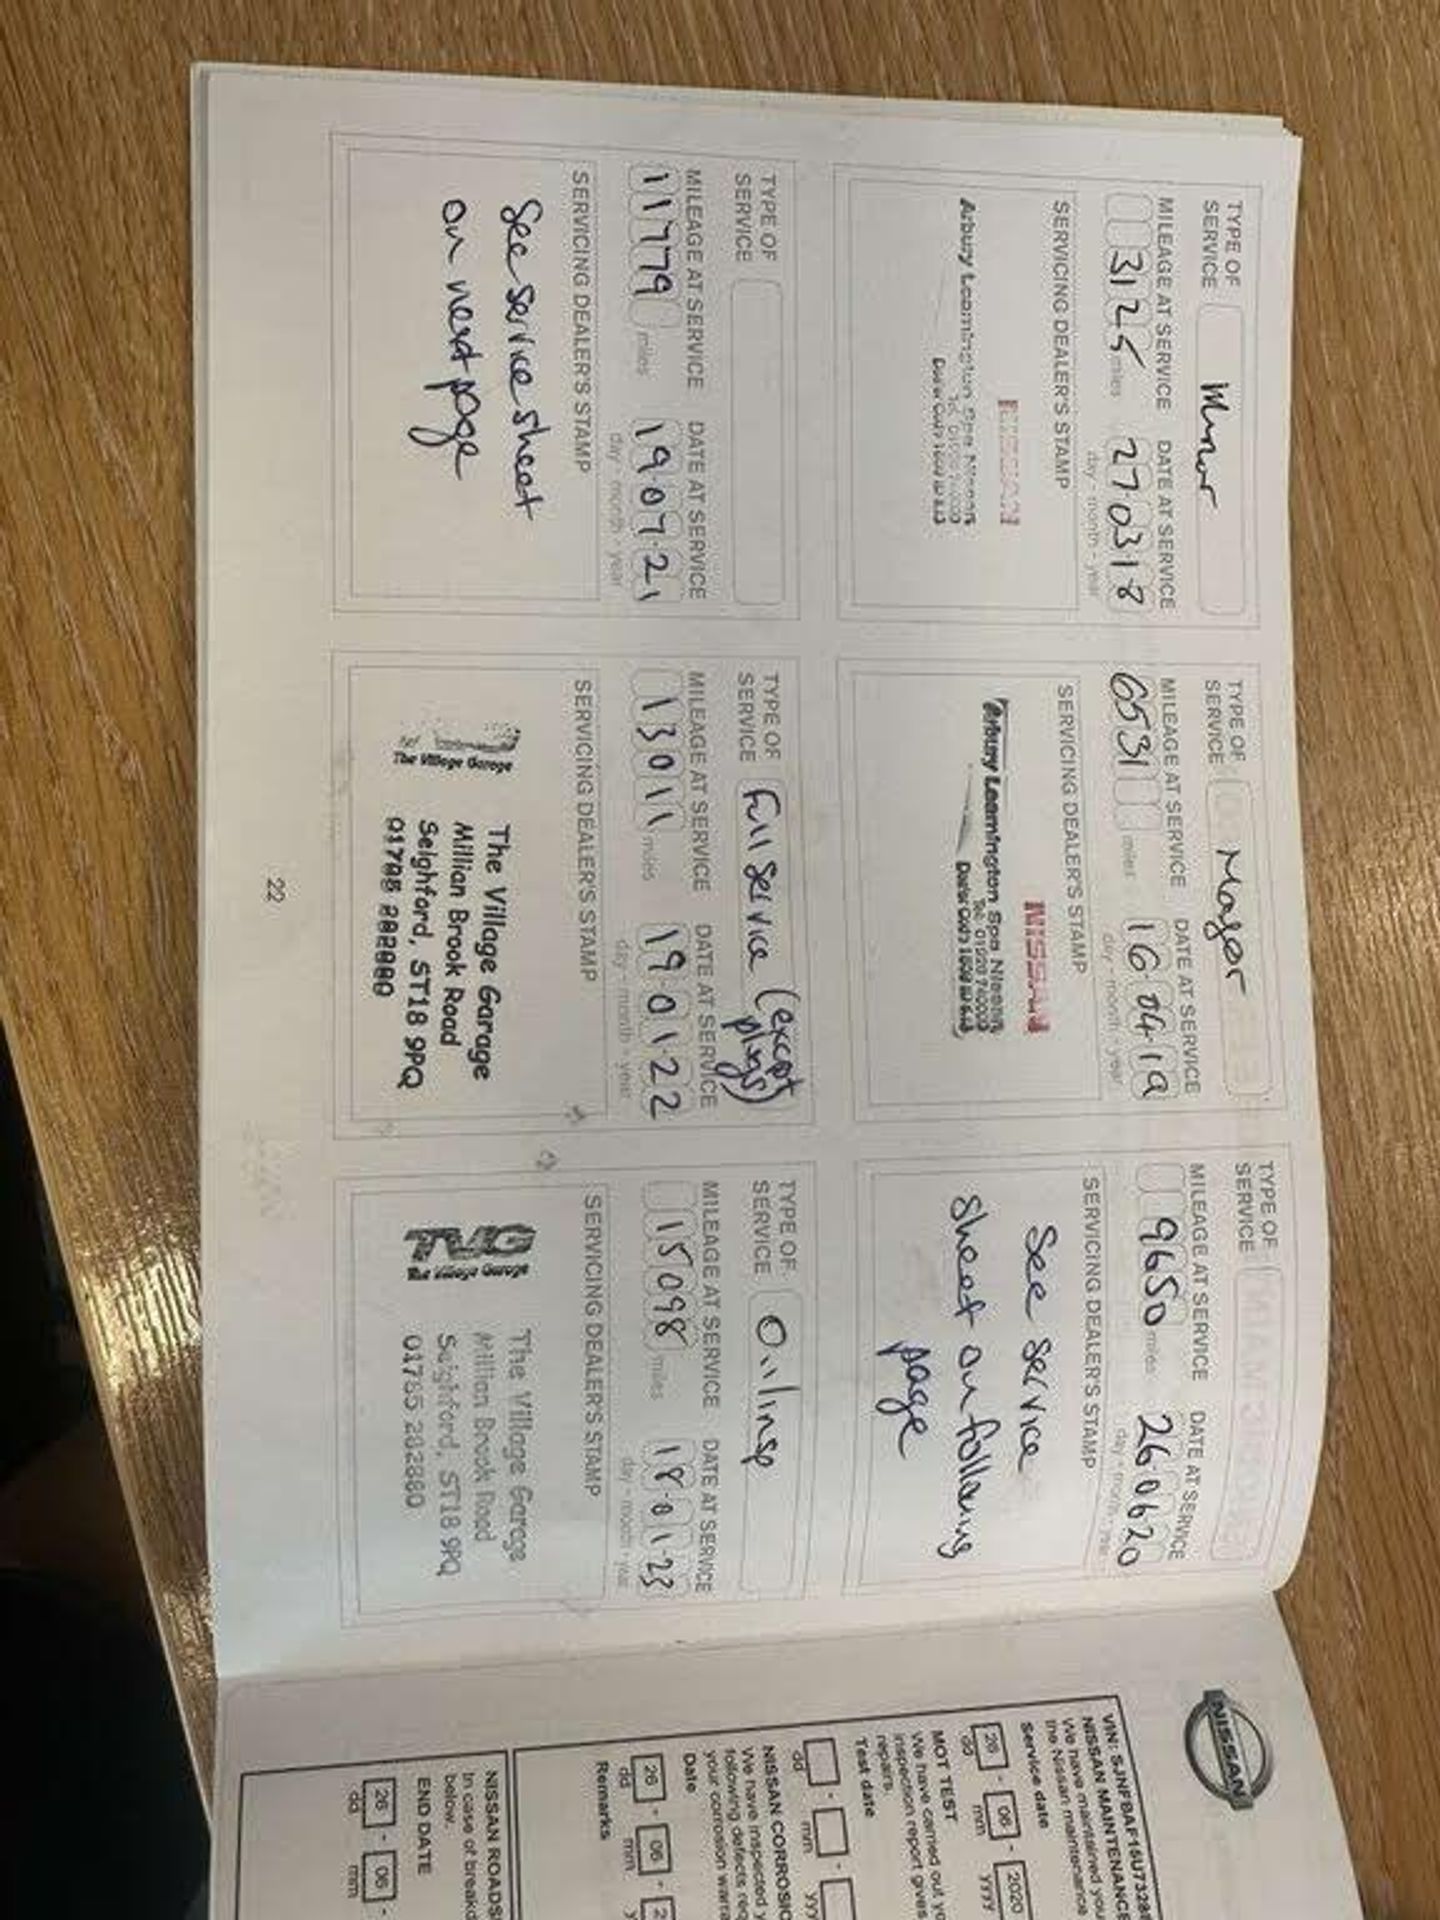 TYPE OF
SERVICE
Minor
MILEAGE AT SERVICE
DATE AT SERVICE
3125 miles
270318
day - month - year
SERVICING DEALER'S STAMP
NISSAN
Arbury Leamington Spa Nissan
TYPE OF
SERVICE
Major
MILEAGE AT SERVICE
DATE AT SERVICE
6531 miles
160419
day - month - year
SERVICING DEALER'S STAMP
NISSAN
Arbury Leamington Spa Nissan
TYPE OF
SERVICE
MILEAGE AT SERVICE
DATE AT SERVICE
9650 miles
260620
day - month - year
SERVICING DEALER'S STAMP
See service
sheet on following
page
TYPE OF
SERVICE
MILEAGE AT SERVICE
DATE AT SERVICE
11779 miles
190721
day - month - year
SERVICING DEALER'S STAMP
See service sheet
on next page
TYPE OF
SERVICE
Full service (except
plugs)
MILEAGE AT SERVICE
DATE AT SERVICE
13011 miles
190122
day - month - year
SERVICING DEALER'S STAMP
The Village Garage
The Village Garage
Millian Brook Road
Seighford, ST18 9PQ
TYPE OF
SERVICE
Oil insp
MILEAGE AT SERVICE
DATE AT SERVICE
15098 miles
180123
day - month - year
SERVICING DEALER'S STAMP
TVG
The Village Garage
The Village Garage
Millian Brook Road
Seighford, ST18 9PQ
01785 282880
22
NISSAN
NISSAN MAINTENANCE
We have maintained you
the Nissan maintenance
Service date
26 - 06 - 2020
dd mm yyyy
MOT TEST
We have carried out yo
inspection report gives
repairs.
Test date
dd mm yyy
NISSAN CORROSIO
We have inspected y
following defects req
your corrosion warra
Date
26 - 06 - 2
dd mm y
Remarks
NISSAN ROADS
In case of breakd
below.
END DATE
26 - 06 -
dd mm